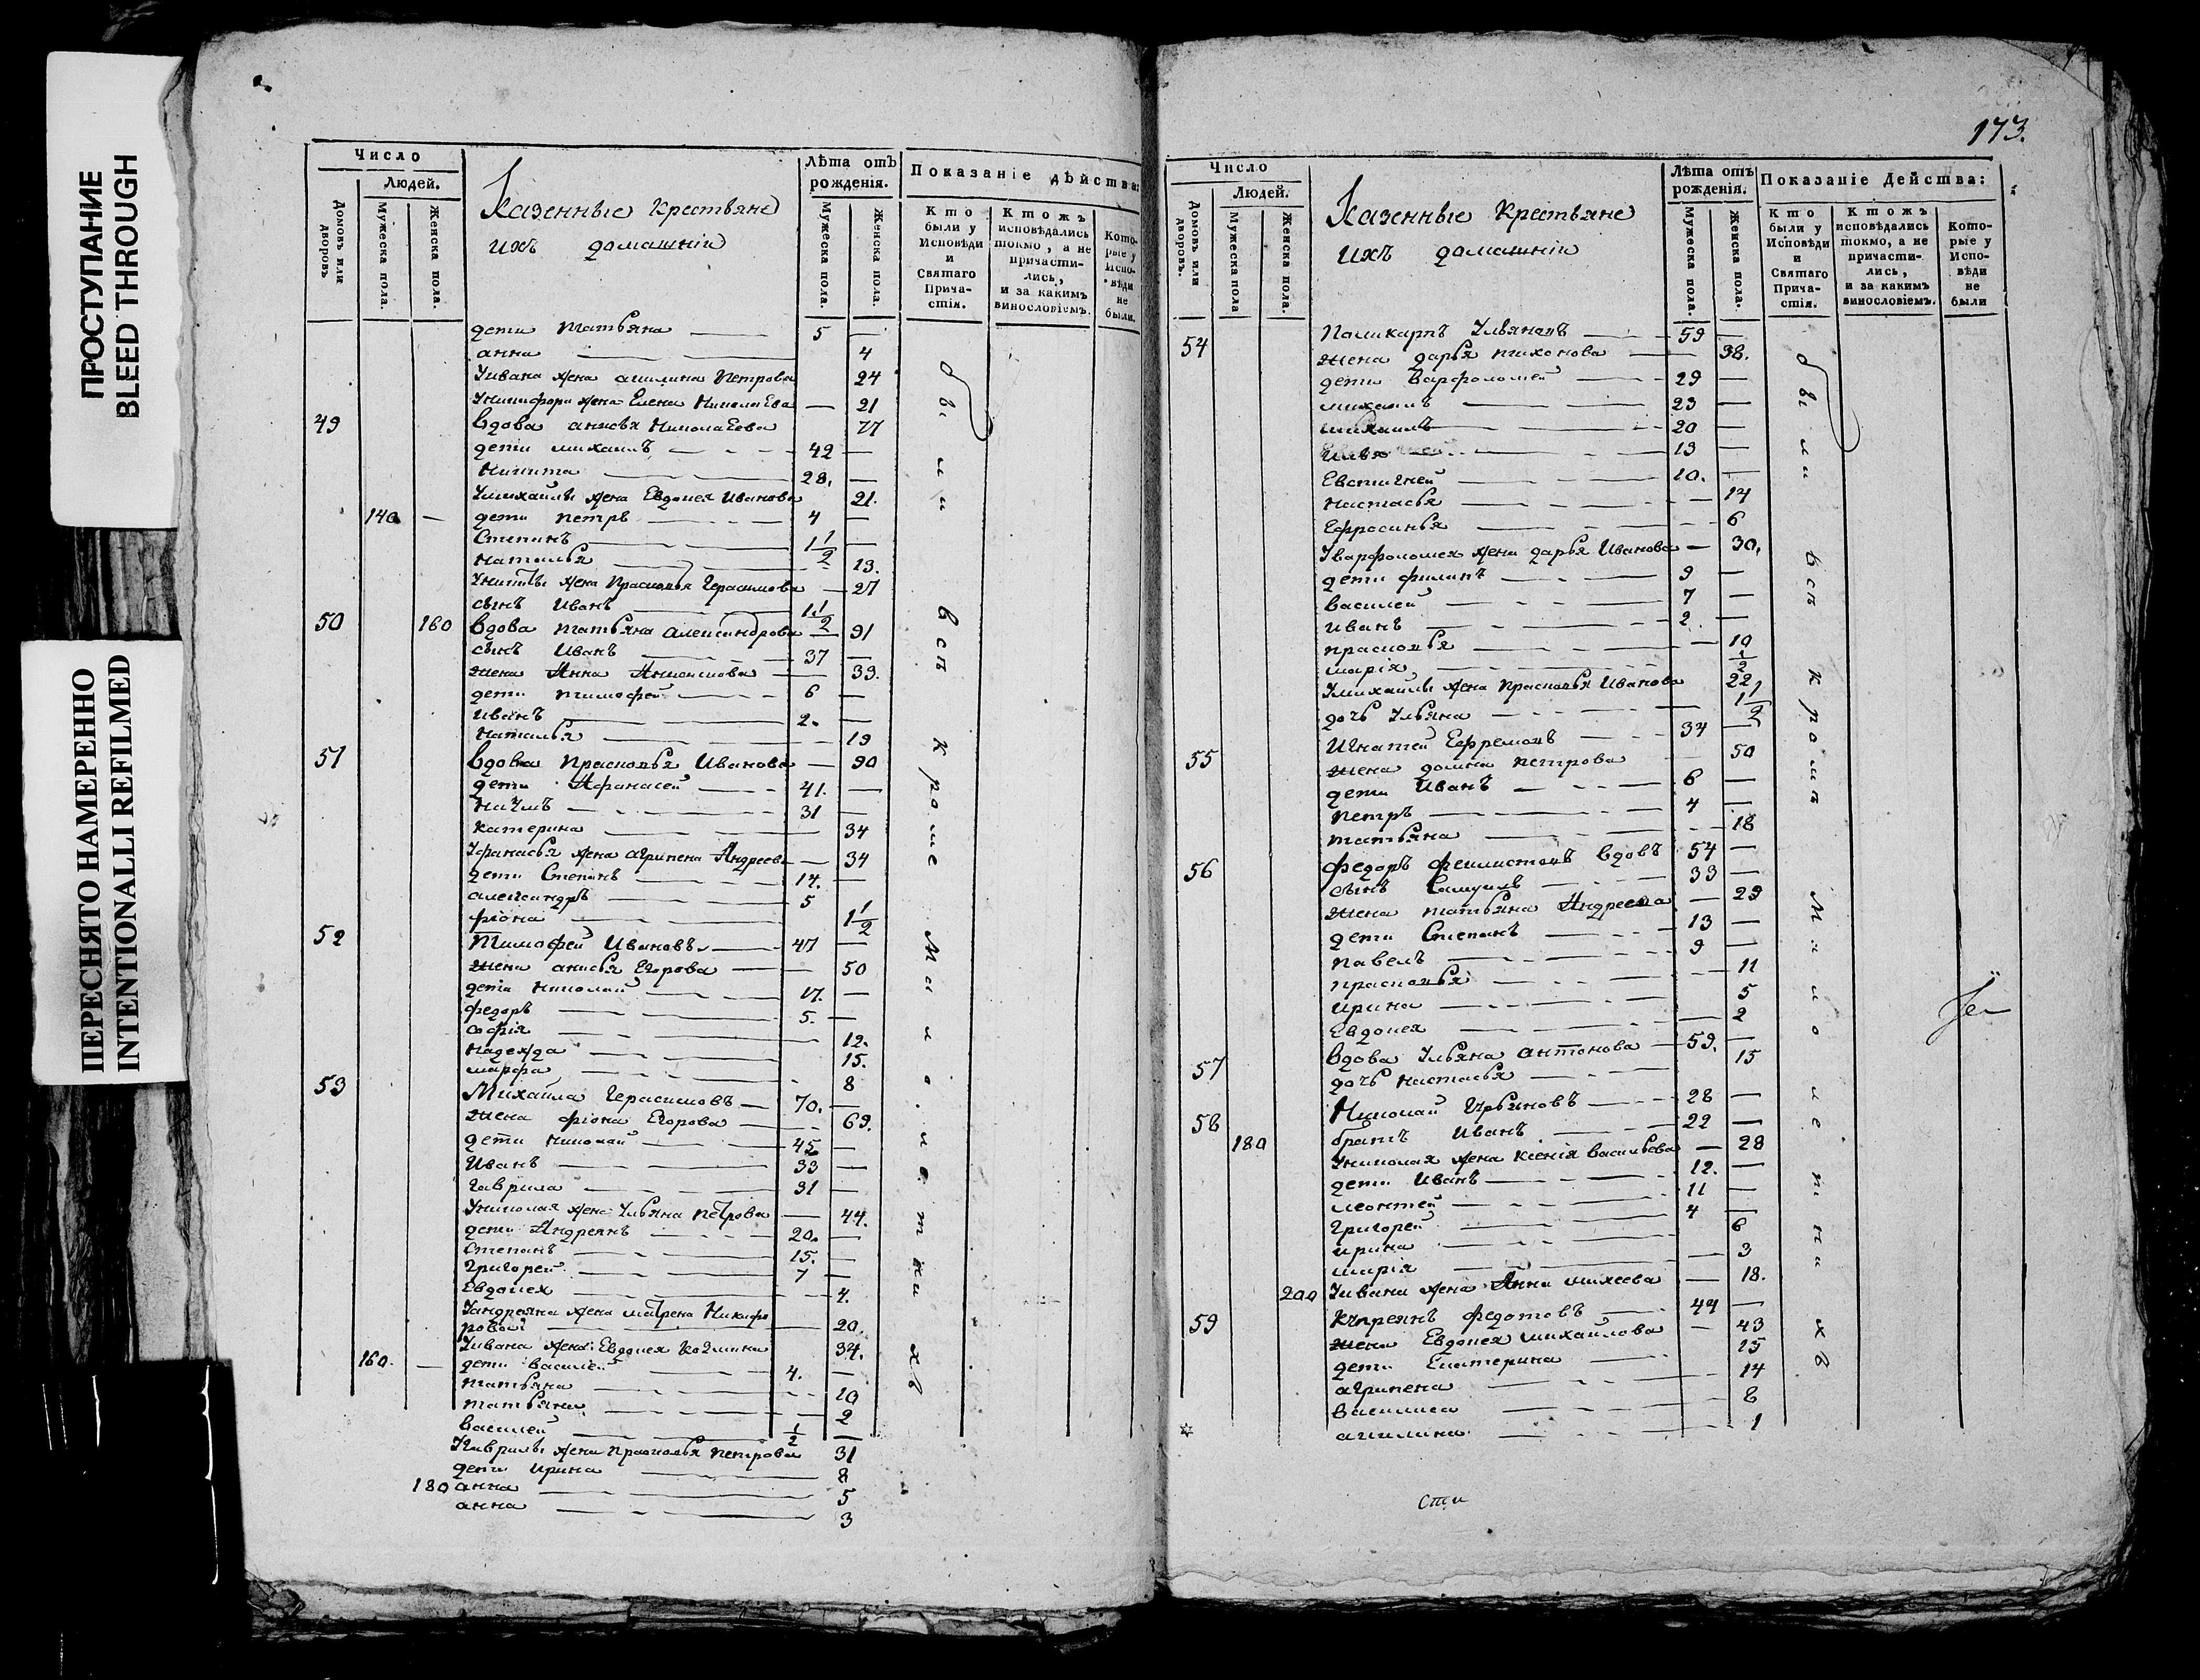 ПРОСТУПАНИЕ
BLEED THROUGH
ПЕРЕСНЯТО НАМЕРЕННО
INTENTIONALLI REFILMED
Число
Людей.
Домовъ или дворовъ
Мужеска пола.
Женска пола.
Казенные Крестьяне
ихъ домашніи
Лѣта отъ рожденія.
Мужеска пола.
Женска пола.
Показаніе дѣйства:
Кто были у Исповѣди и Святаго Прича-стія.
Ктожъ исповѣдались токмо, а не причасти-лись, и за какимъ винословіемъ.
Кото-рые у Испо-вѣди не были.
дети татьяна 5
анна 4
Уивана жена акилина Петрова 24
Уникифора жена Елена Николаева 21
49 Вдова анисья Николаева 77
дети михаилъ 42
Никита 28.
Умихайлы жена Евдокея Иванова 21.
140 дети петръ 4
Степанъ 1 1/2
Наталья 13.
Уникиты жена Прасковья Герасимова 27
сынъ Иванъ 1 1/2
50 160 Вдова татьяна александрова 91
сынъ Иванъ 37
жена Анна 33.
дети тимофей 6
иванъ 2.
Наталья 19
51 Вдова Прасковья Иванова 90
дети Афанасей 41.
Наумъ 31
катерина 34
Уфанасья жена агрипена Андреева 34
дети Степанъ 14.
александръ 5
фіона 1 1/2
52 Тимофей Ивановъ 47
жена анисья Егорова 50
дети николай 17.
федоръ 5.
софія 12.
надежда 15.
марфа 8
53 Михайла Герасимовъ 70.
жена фіона Егорова 69.
дети николай 45
Иванъ 33
гаврила 31
Униколая жена Ульяна петрова 44.
дети Андреянъ 20.
степанъ 15.
григорей 7
Евдокея 4.
Уандреяна жена матрена Никифо
ровой 20.
Уивана жена Евдокея Козмина 34.
160. дети василей 4.
татьяна 10
татьяна 2
василей 1/2
Угаврилы жена прасковья петрова 31
дети ирина 8
180 анна 5
анна 3
были
всѣ
кроме
малолетнихъ
173.
Число
Людей.
Домовъ или дворовъ.
Мужеска пола
Женска пола.
Казенные Крестьяне
ихъ домашніи
Лѣта отъ рожденія.
Мужеска пола.
Женска пола.
Показаніе Действа:
Кто были у Исповѣди и Святаго Прича-стія.
Ктожъ исповѣдались токмо, а не причасти-лись, и за какимъ винословіемъ.
Кото-рые у Испо-вѣди не были
54 Поликарпъ Ульяновъ 59
жена дарья тихонова 38.
дети варфоломей 29
михаилъ 23
михаилъ 20
илья 13
Евстигней 10.
настасья 14
Ефросинья 6
Уварфоломея жена дарья Иванова 30.
дети филипъ 9
василей 7
иванъ 2.
прасковья 10
марія 1/2
Умихайлы жена Прасковья Иванова 22
дочь Ульяна 1 1/2
55 Игнатей Ефремовъ 34
жена домна петрова 50
дети Иванъ 6
петръ 4
татьяна 18
56 федоръ феклистовъ вдовъ 54
сынъ Самуилъ 33
жена татьяна Андреева 29
дети Степанъ 13
павелъ 9
прасковья 11
ирина 5
Евдокея 2
57 Вдова Ульяна антонова 59.
дочь настасья 15
58 Николай 28
180 братъ Иванъ 22
Униколая жена ксенія васильева 28
дети Иванъ 12.
леонтей 11
григорей 4
ирина 6
марія 3
200 Уивана жена Анна михеева 18.
59 Купреянъ федотовъ 44
жена Евдокея михайлова 43
дети Екатерина 15
агрипена 14
василиса 8
акилина 1
были
всѣ
кромѣ
малолетнихъ